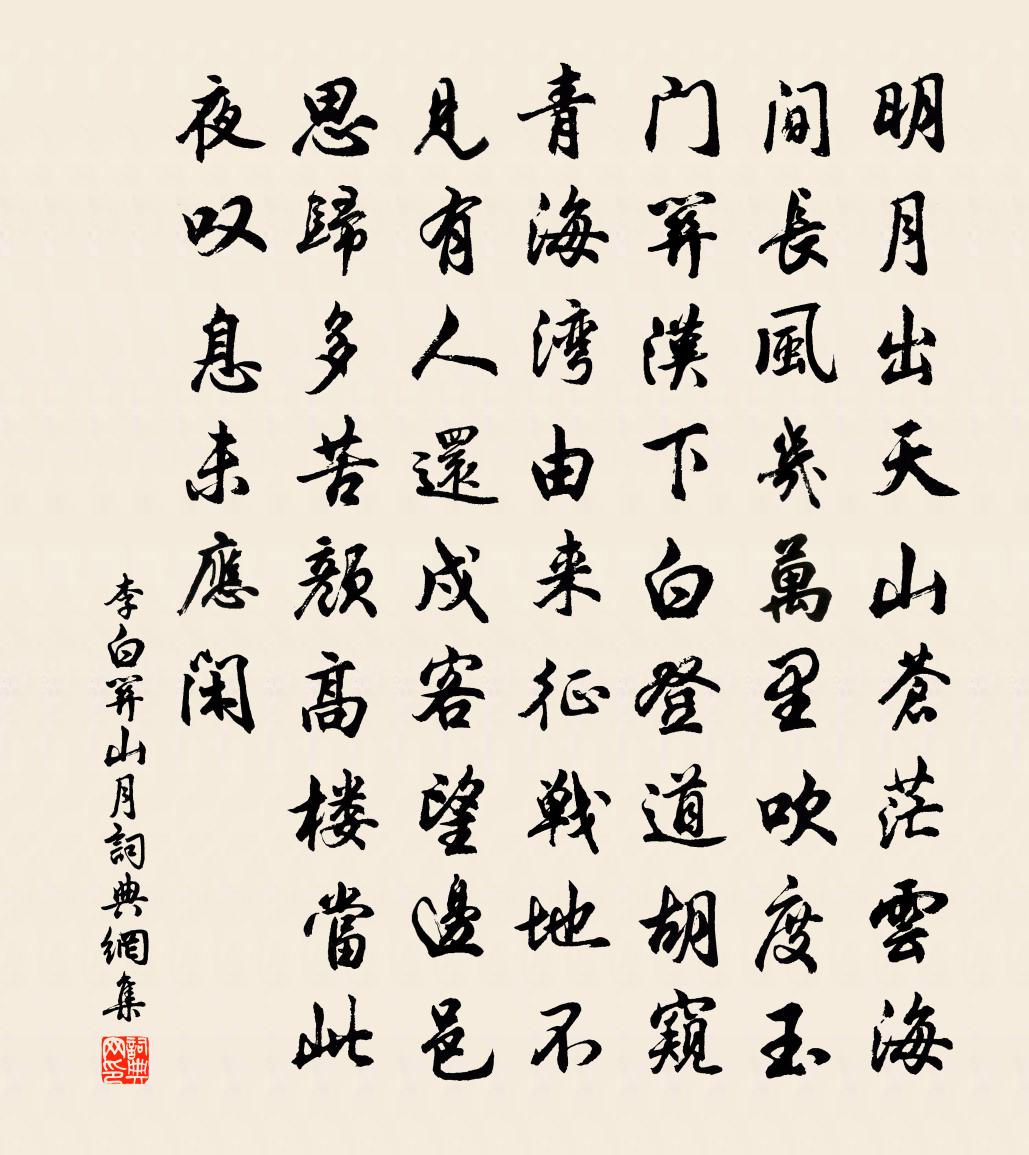 明月出天山蒼茫雲海
间長風幾萬里吹度玉
门関漢下白登道胡窺
青海湾由来征戦地不
見有人還戍客望邊邑
思歸多苦顏高楼當此
夜叹息未應闲
李白関山月詞典網集
詞典网印